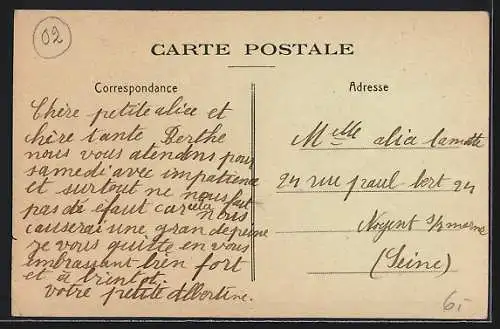 02
CARTE POSTALE
Correspondance
Adresse
Chère petite alice et
chère tante Berthe
nous vous atendons pour
samedi avec impatience
et surtout ne nous fait
pas dé efaut car cela nous
causerai une gran de peine
je vous quitte en vous
embrassant bien fort
et à bientot
votre petite Albertine.
Melle alia Lamette
24 rue paul bert 24
Nogent s/marne
(Seine)
6.-